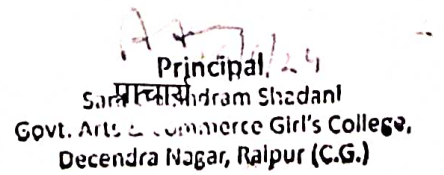 /24
Principal,
प्राचार्य
Shadani
Govt. Arts & Commerce Girl's College,
Decendra Nagar, Raipur (C.G.)